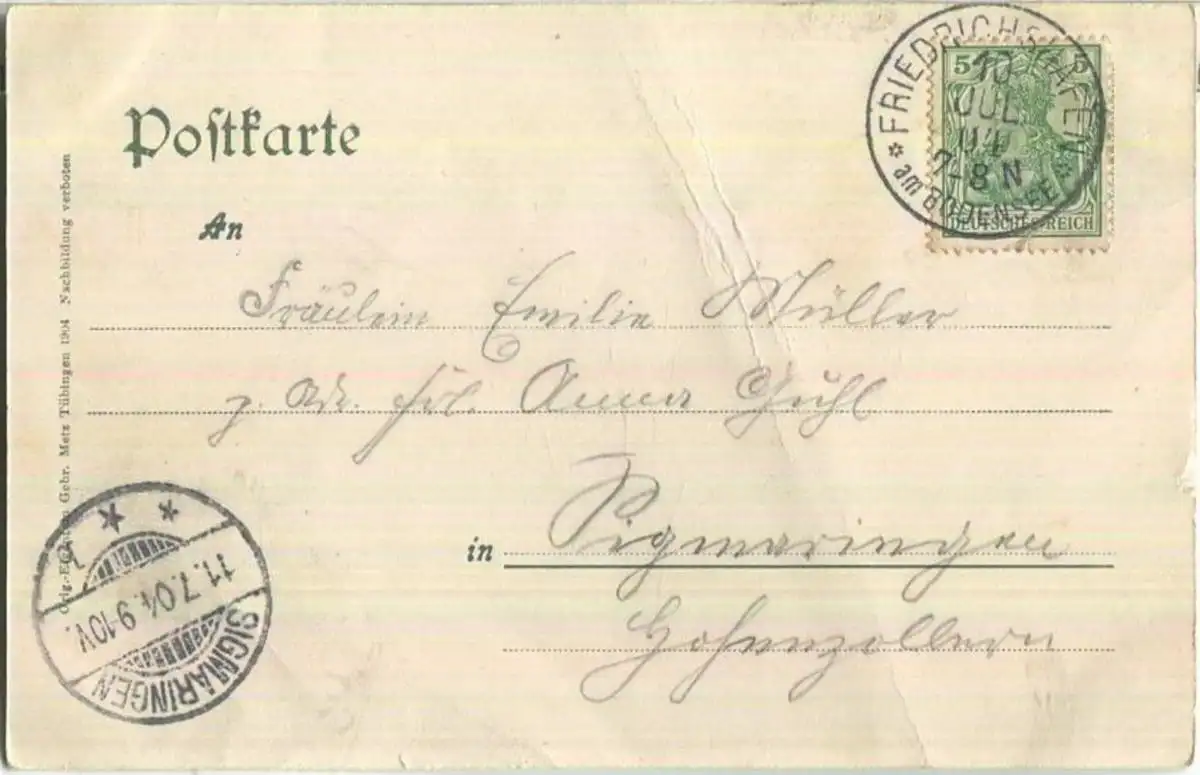 Postkarte
FRIEDRICHSHAFEN
5 5
10
JUL
04
7-8 N
am BODENSEE
DEUTSCHES REICH
An
Fräulein Emilie Müller
Frl. Anna Guhl
in Sigmaringen
Hohenzollern
Gebr. Metz Tübingen 1904 Nachbildung verboten
11.7.04. 9-10V.
SIGMARINGEN